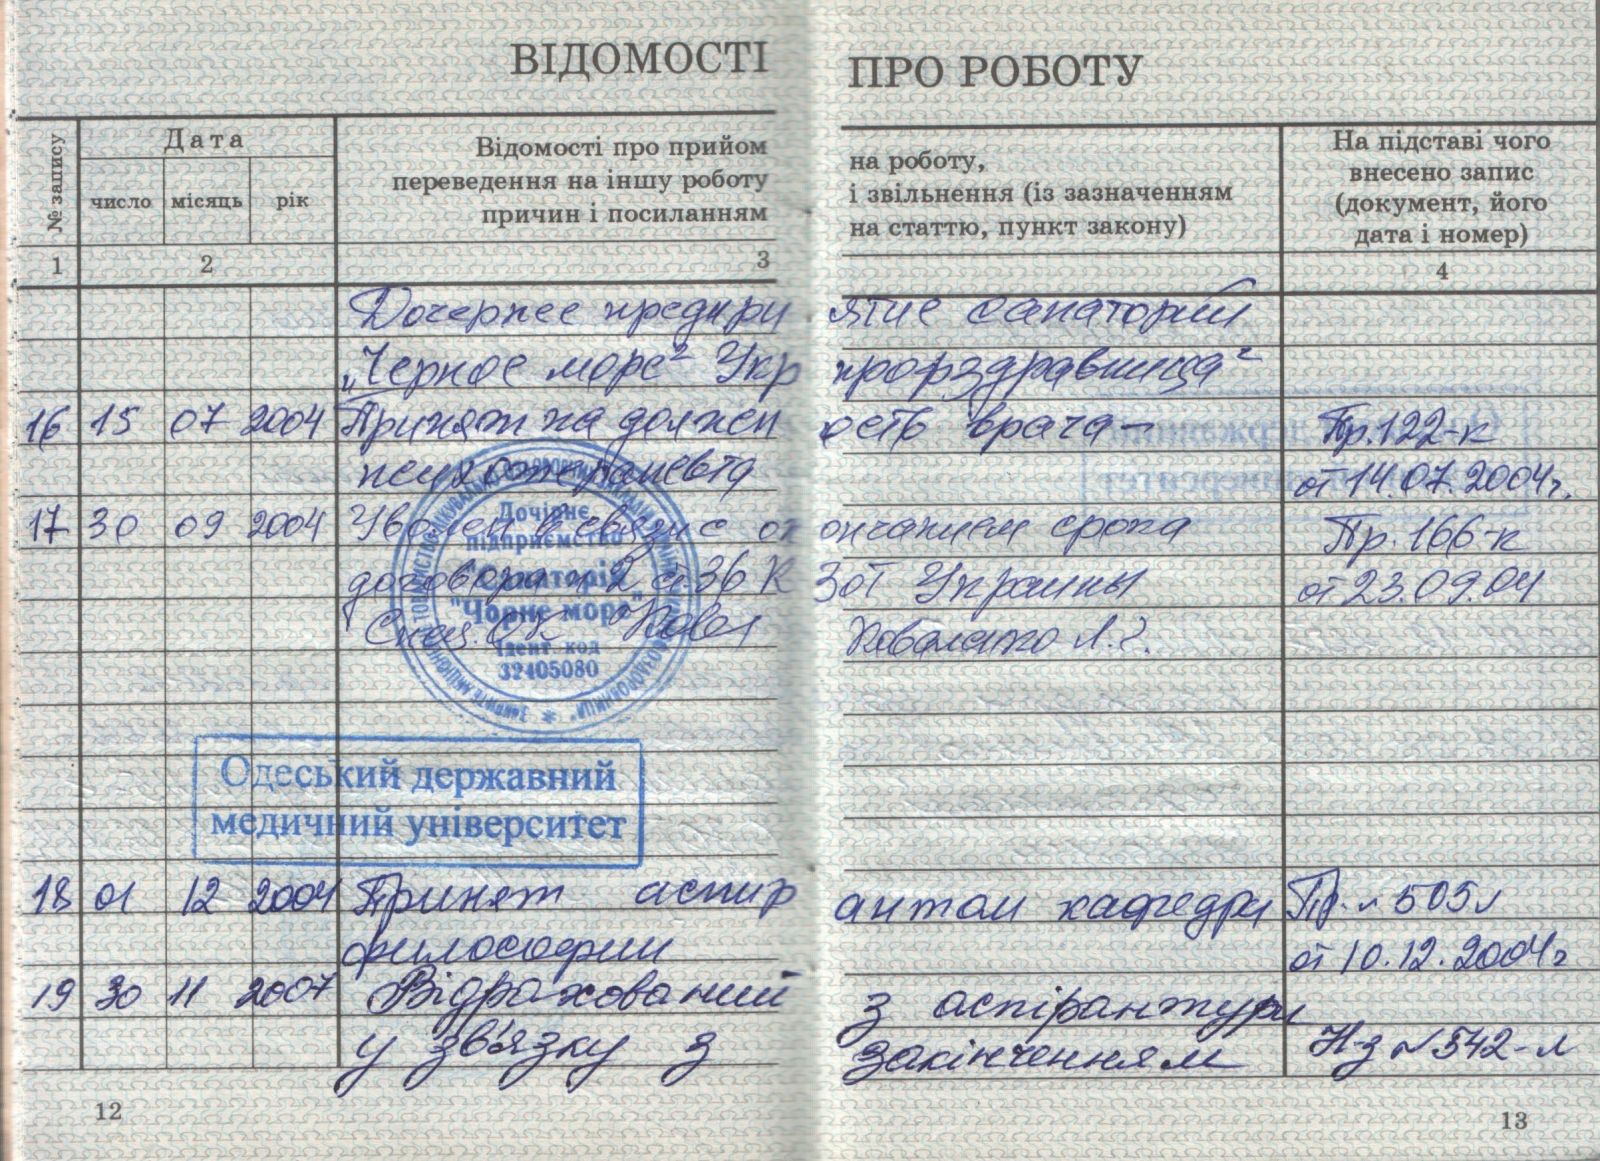 ВІДОМОСТІ ПРО РОБОТУ
№ запису
Дата
число місяць рік
Відомості про прийом на роботу,
переведення на іншу роботу і звільнення (із зазначенням
причин і посиланням на статтю, пункт закону)
На підставі чого
внесено запис
(документ, його
дата і номер)
1 2 3 4
Дочернее предприятие санаторий
„Черное море" Укрпрофздравница"
16 15 07 2004 Принят на должность врача- Пр.122-к
психотерапевта от 14.07.2004г.
17 30 09 2004 Уволен в связи с окончанием срока Пр.166-к
договора п 2 ст 36 КЗоТ Украины от 23.09.04
Коваленко Л.
Дочірнє
підприємство
"Санаторій
"Чорне море"
Ідент. код
32405080
Одеський державний
медичний університет
18 01 12 2004 Принят аспирантом кафедры Пр. 505л
философии от 10.12.2004г
19 30 11 2007 Відрахований з аспірантури
у зв'язку з закінченням Н-з №542-л
12 13